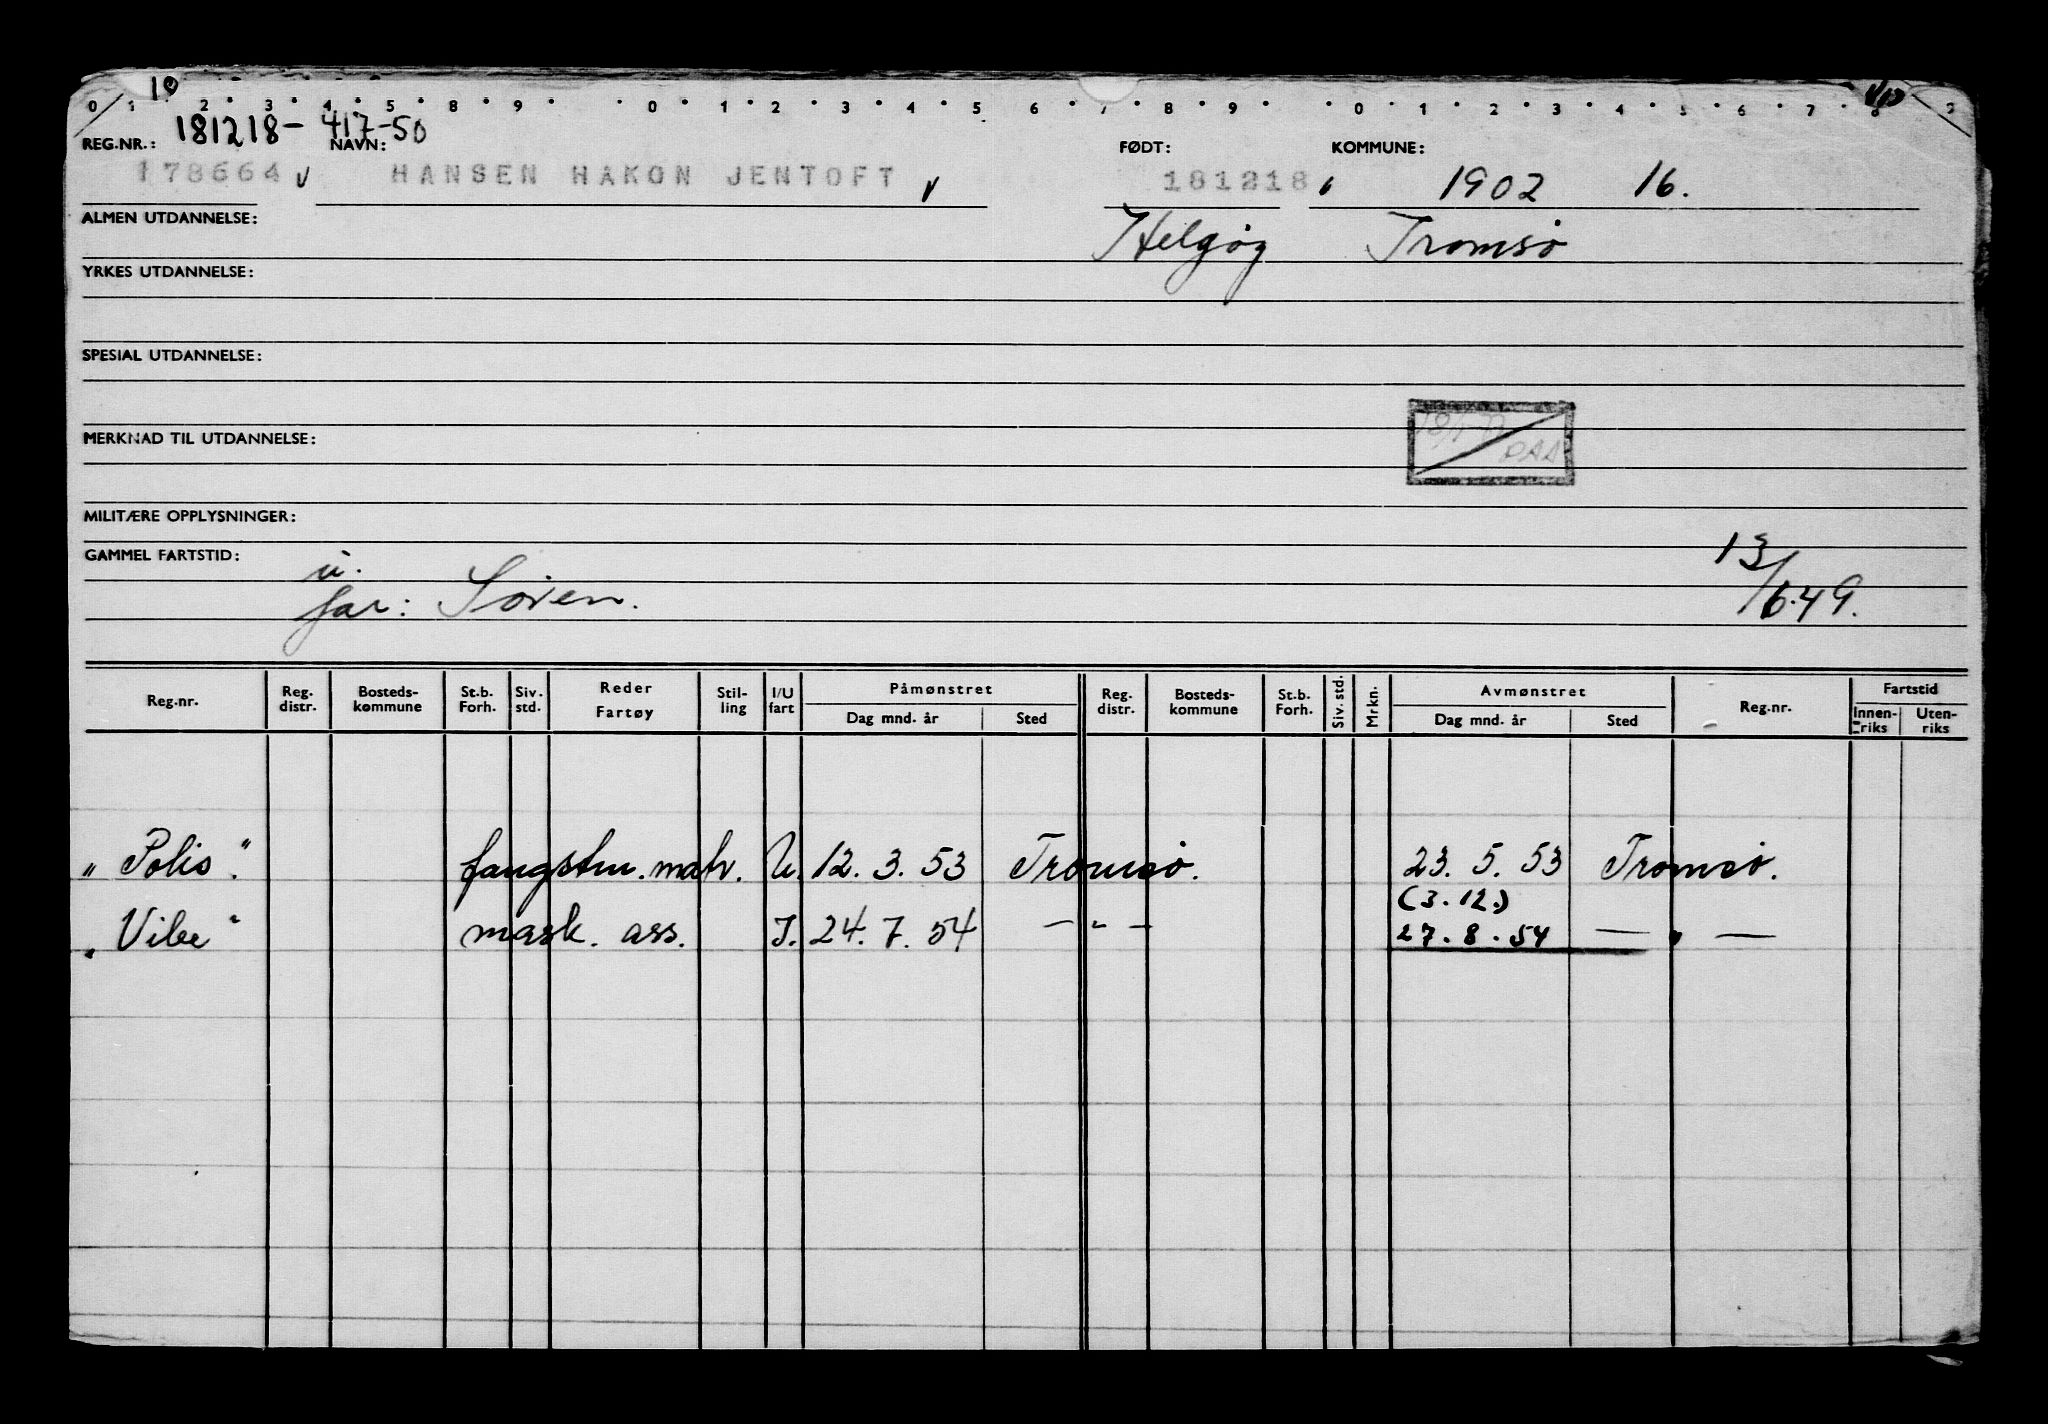 10
0 1 2 3 4 5 8 9 0 1 2 3 4 5 6 7 8 9 0 1 2 3 4 5 6 7 8 9
181218-417-50
REG.NR.: NAVN: FØDT: KOMMUNE:
178664 v HANSEN HAKON JENTOFT v 181218 1902 16.
ALMEN UTDANNELSE: Helgøy Tromsø
YRKES UTDANNELSE:
SPESIAL UTDANNELSE:
MERKNAD TIL UTDANNELSE:
MILITÆRE OPPLYSNINGER:
GAMMEL FARTSTID: u. 13/6.49.
far: Søren.
Reg.nr. Reg. distr. Bosteds-kommune St.b. Forh. Siv. std. Reder Fartøy Stil-ling I/U fart Påmønstret Dag mnd. år Sted Reg. distr. Bosteds-kommune St.b. Forh. Siv. std. Mrkn. Avmønstret Dag mnd. år Sted Reg.nr. Fartstid Innen-riks Uten-riks
"Polis". fangstm. matr. U. 12. 3. 53 Tromsø. 23. 5. 53 Tromsø.
(3.12.)
"Vibe" mask. ass. I. 24. 7. 54 — " — 27. 8. 54 — " —